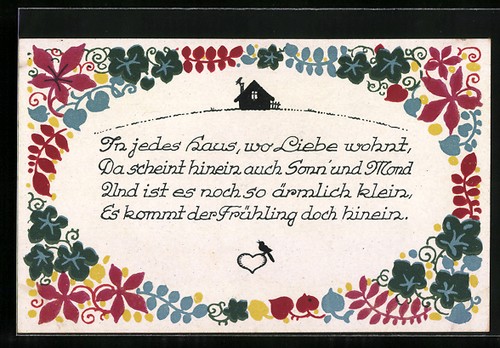 In jedes Haus, wo Liebe wohnt,
Da scheint hinein auch Sonn' und Mond
Und ist es noch so ärmlich klein,
Es kommt der Frühling doch hinein.